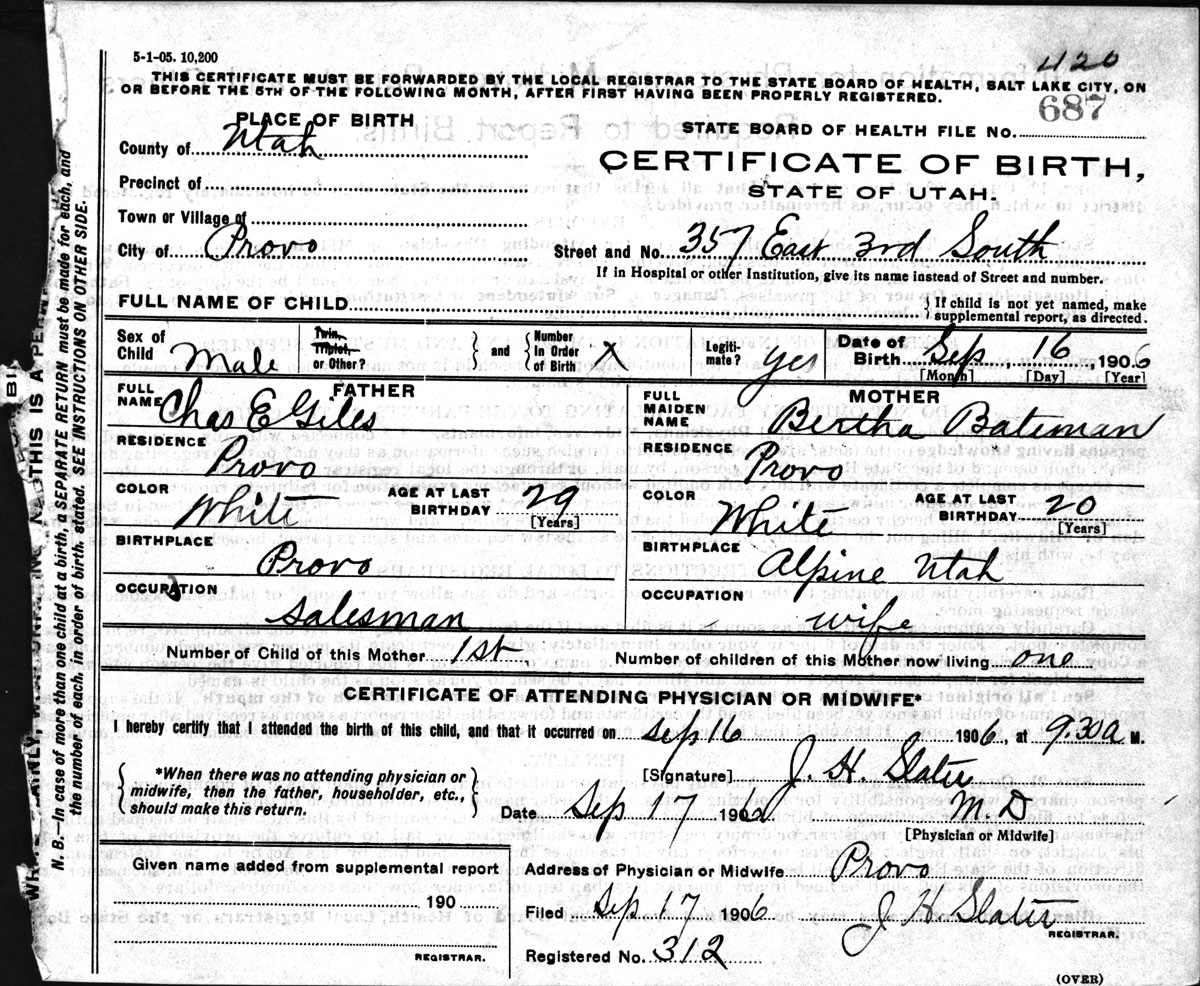 5-1-05. 10,200
420
THIS CERTIFICATE MUST BE FORWARDED BY THE LOCAL REGISTRAR TO THE STATE BOARD OF HEALTH, SALT LAKE CITY, ON
OR BEFORE THE 5TH OF THE FOLLOWING MONTH, AFTER FIRST HAVING BEEN PROPERLY REGISTERED.
PLACE OF BIRTH
STATE BOARD OF HEALTH FILE NO. 687
County of Utah
CERTIFICATE OF BIRTH,
Precinct of
STATE OF UTAH.
Town or Village of
City of Provo
Street and No. 357 East 3rd South
If in Hospital or other Institution, give its name instead of Street and number.
FULL NAME OF CHILD
{ If child is not yet named, make
supplemental report, as directed.
Sex of Child Male
Twin, Triplet, or Other?
} and { Number in Order of Birth X
Legitimate? Yes
Date of Birth Sep 16, 1906
[Month] [Day] [Year]
FATHER
FULL NAME Chas E Giles
RESIDENCE Provo
COLOR White
AGE AT LAST BIRTHDAY 29
[Years]
BIRTHPLACE Provo
OCCUPATION Salesman
MOTHER
FULL MAIDEN NAME Bertha Bateman
RESIDENCE Provo
COLOR White
AGE AT LAST BIRTHDAY 20
[Years]
BIRTHPLACE Alpine Utah
OCCUPATION wife
Number of Child of this Mother 1st
Number of children of this Mother now living one
CERTIFICATE OF ATTENDING PHYSICIAN OR MIDWIFE*
I hereby certify that I attended the birth of this child, and that it occurred on Sep 16 1906, at 9.30 a M.
{ *When there was no attending physician or
midwife, then the father, householder, etc.,
should make this return. }
[Signature] J. H. Slater
M.D
Date Sep 17 1906
[Physician or Midwife]
Given name added from supplemental report
190
REGISTRAR.
Address of Physician or Midwife Provo
Filed Sep 17 1906 J H. Slater
REGISTRAR.
Registered No. 312
(OVER)
THIS IS A
N. B.—In case of more than one child at a birth, a SEPARATE RETURN must be made for each, and
the number of each, in order of birth, stated. SEE INSTRUCTIONS ON OTHER SIDE.